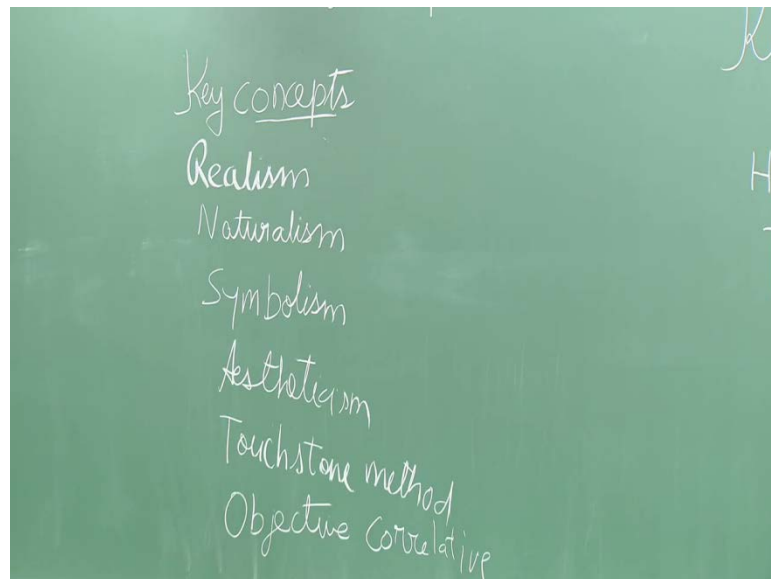 Key concepts
Realism
Naturalism
Symbolism
Aestheticism
Touchstone method
Objective correlative
K
H